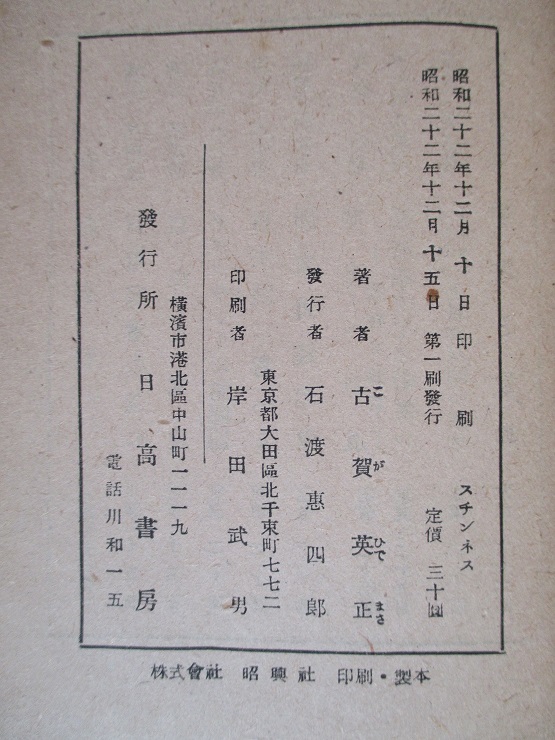 昭和二十二年十二月十日印刷 スチンネス
昭和二十二年十二月十五日 第一刷發行 定價 三十圓
著者 古賀英正
こ が ひで まさ
發行者 石渡惠四郎
東京都大田區北千束町七七二
印刷者 岸田武男
横濱市港北區中山町一一一九
發行所 日高書房
電話川和一五
株式會社 昭興社 印刷・製本